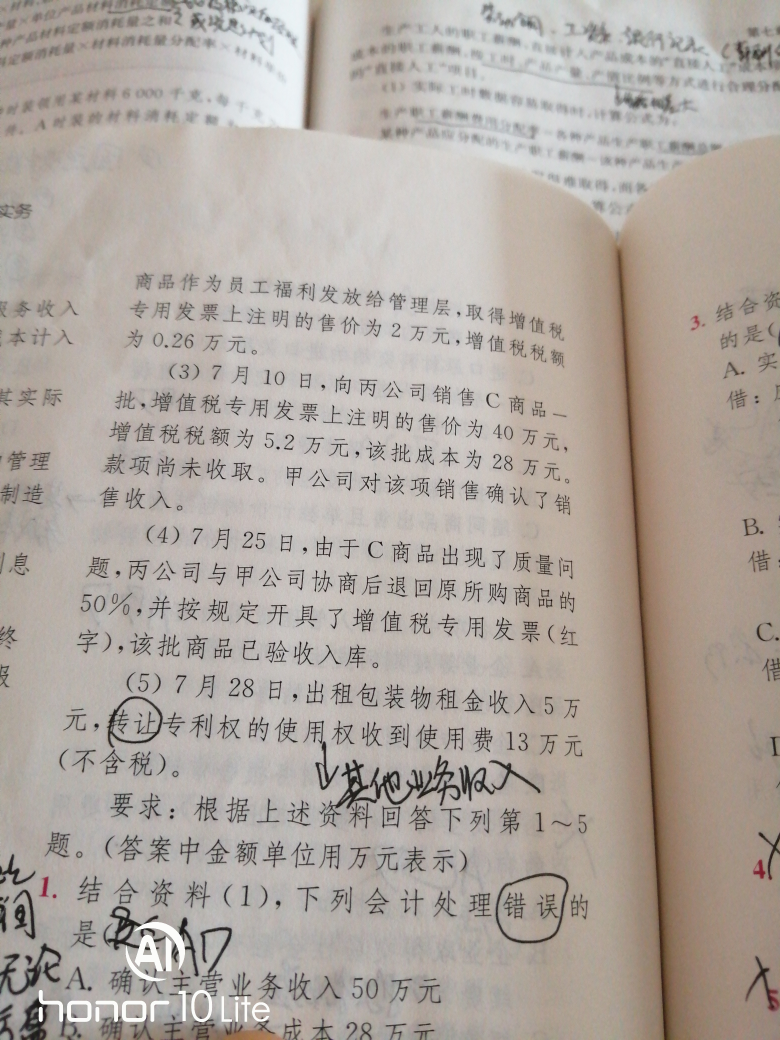 生产工人的职工薪酬,直接计入产品成本的"直接人工"成本项
的"直接人工"项目。
(1)实际工时数据容易取得时,计算公式为:
实务
商品作为员工福利发放给管理层,取得增值税
专用发票上注明的售价为2万元,增值税税额
为0.26万元。
(3)7月10日,向丙公司销售C商品一
批,增值税专用发票上注明的售价为40万元,
增值税税额为5.2万元,该批成本为28万元。
款项尚未收取。甲公司对该项销售确认了销
售收入。
(4)7月25日,由于C商品出现了质量问
题,丙公司与甲公司协商后退回原所购商品的
50%,并按规定开具了增值税专用发票(红
字),该批商品已验收入库。
(5)7月28日,出租包装物租金收入5万
元,转让专利权的使用权收到使用费13万元
(不含税)。
其他业务收入
要求:根据上述资料回答下列第1~5
题。(答案中金额单位用万元表示)
1. 结合资料(1),下列会计处理错误的
是(
AD
A. 确认主营业务收入50万元
B. 确认主营业务成本28万元
服务收入
成本计入
其实际
管理
制造
息
终
报
无论
3. 结合资
的是(
A. 实
借:
B.
借:
C.
借
4
5
AI
honor 10 Lite